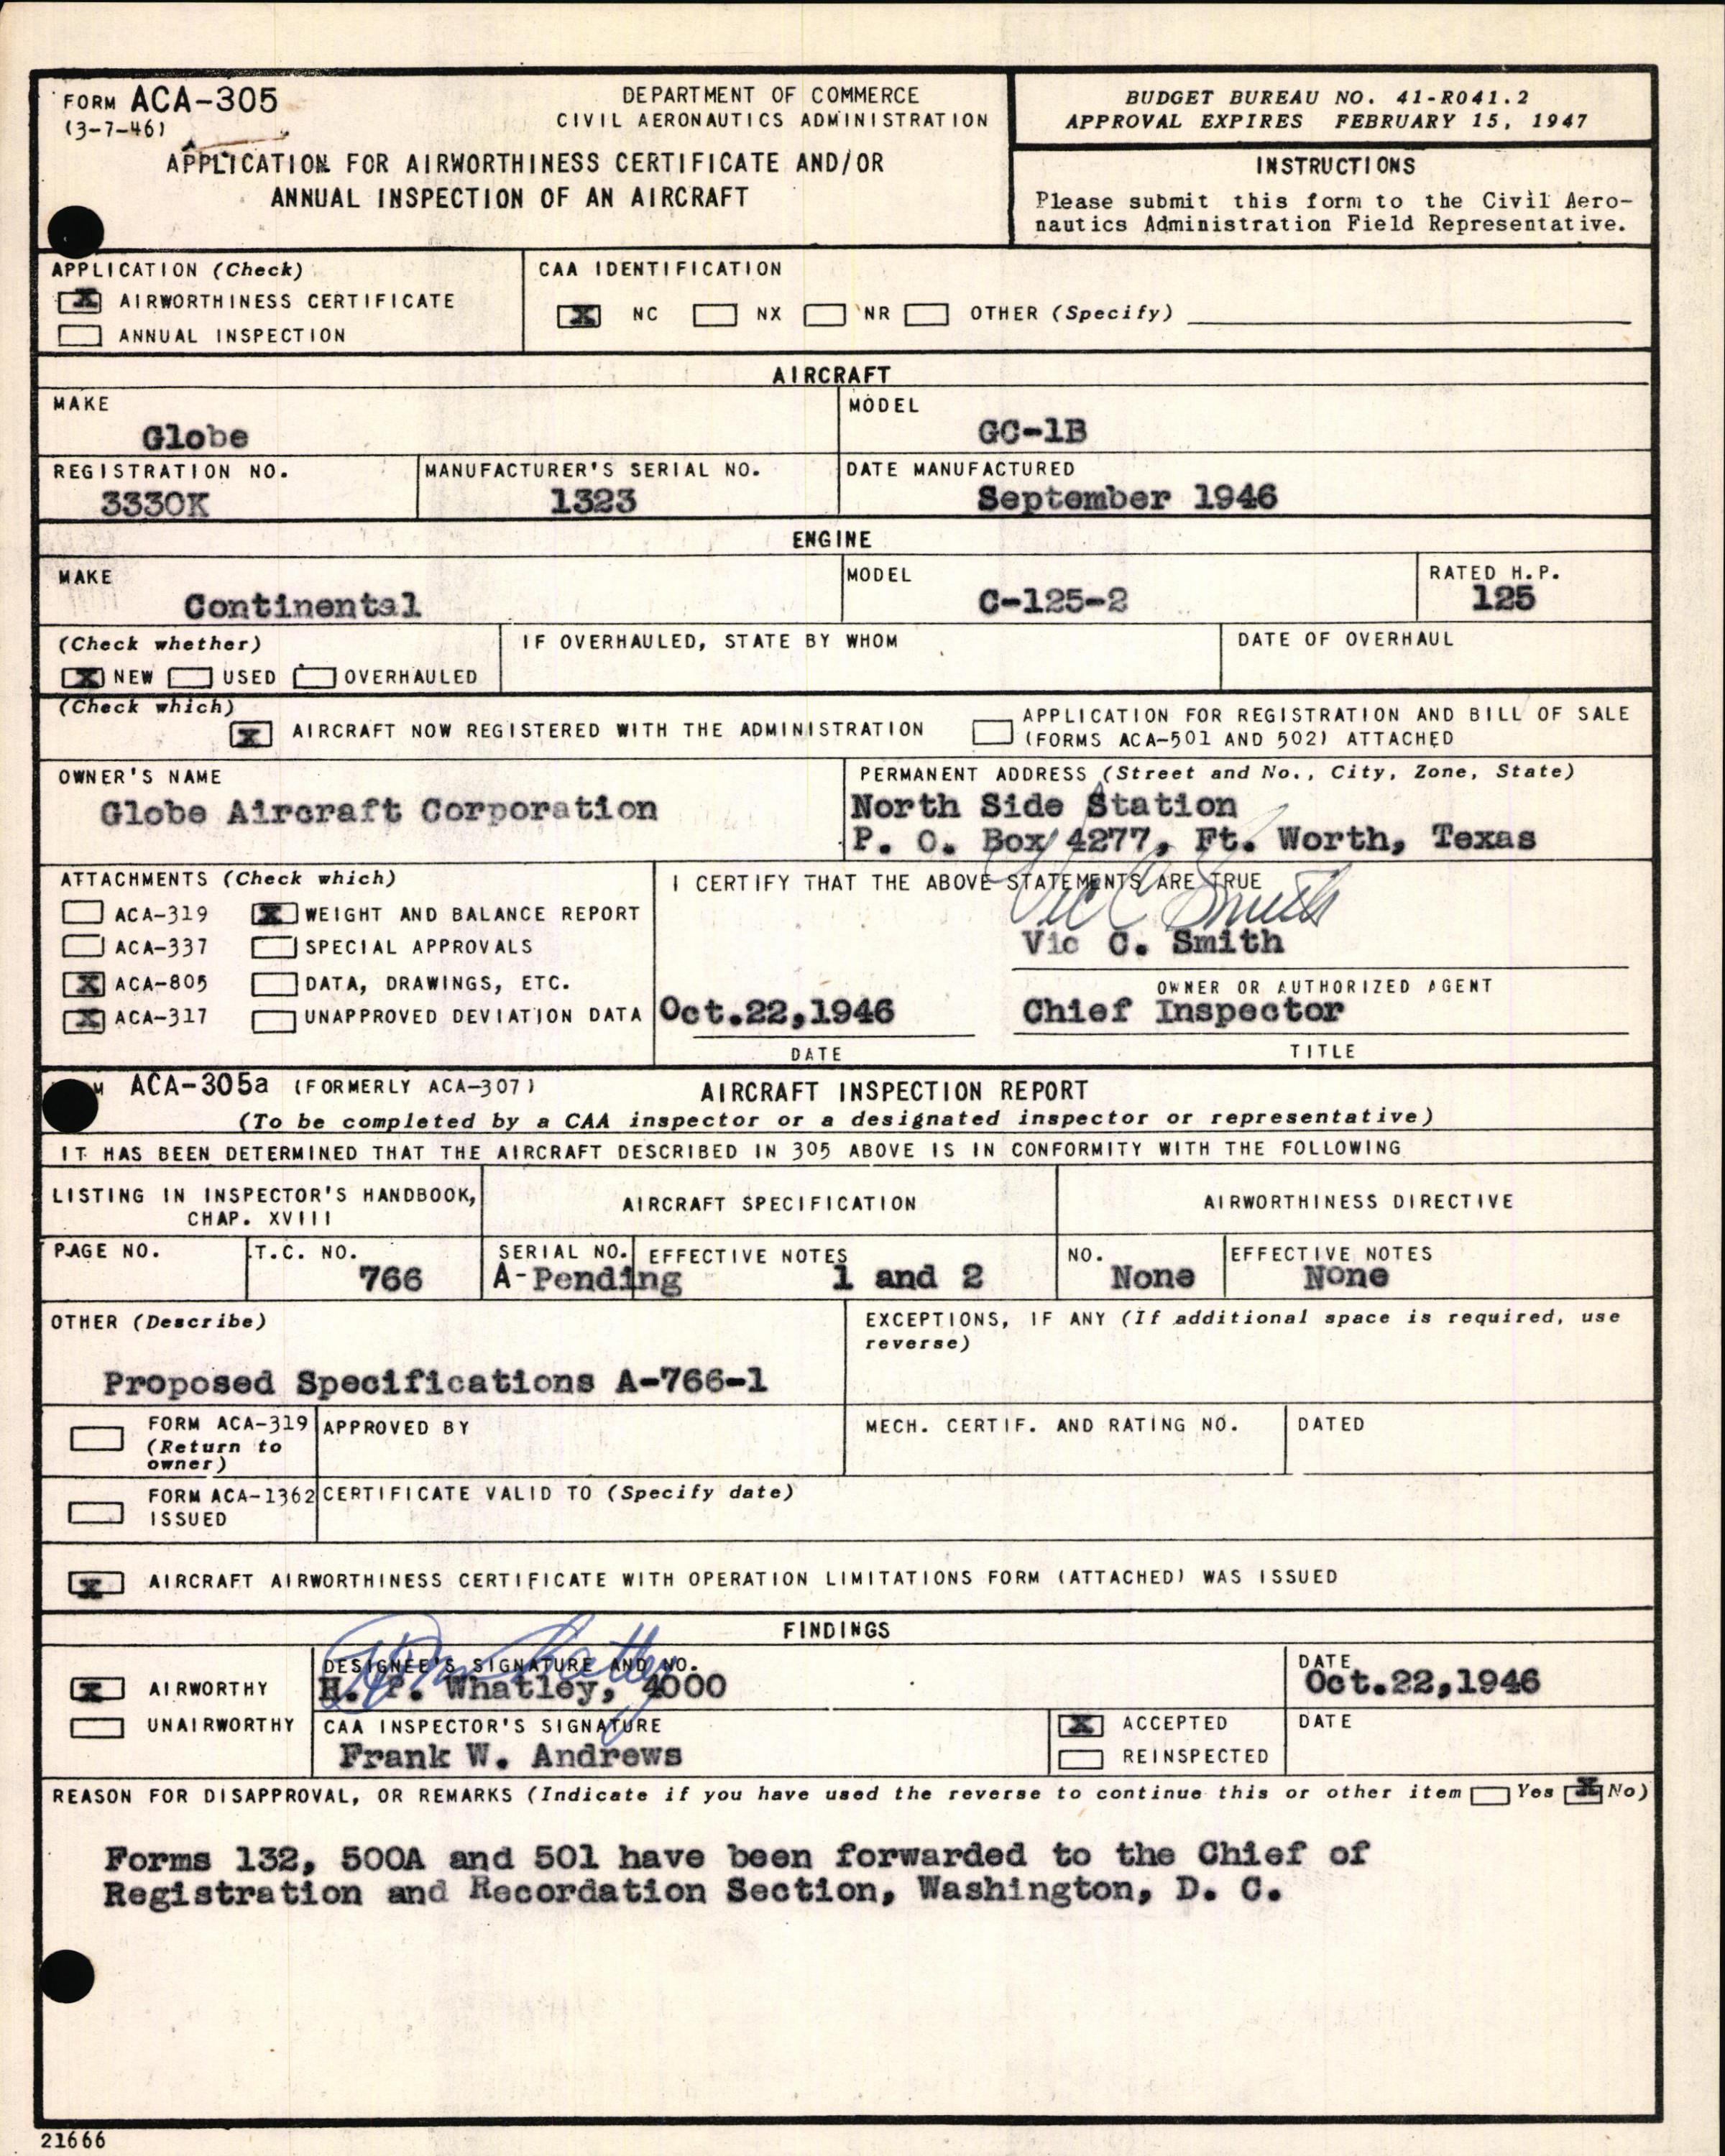 FORM ACA-305
(3-7-46)
DEPARTMENT OF COMMERCE
CIVIL AERONAUTICS ADMINISTRATION
APPLICATION FOR AIRWORTHINESS CERTIFICATE AND/OR
ANNUAL INSPECTION OF AN AIRCRAFT
BUDGET BUREAU NO. 41-R041.2
APPROVAL EXPIRES FEBRUARY 15, 1947
INSTRUCTIONS
Please submit this form to the Civil Aero-
nautics Administration Field Representative.
APPLICATION (Check)
X AIRWORTHINESS CERTIFICATE
ANNUAL INSPECTION
CAA IDENTIFICATION
X NC NX NR OTHER (Specify)
AIRCRAFT
MAKE
Globe
MODEL
GC-1B
REGISTRATION NO.
3330K
MANUFACTURER'S SERIAL NO.
1323
DATE MANUFACTURED
September 1946
ENGINE
MAKE
Continental
MODEL
C-125-2
RATED H.P.
125
(Check whether)
X NEW USED OVERHAULED
IF OVERHAULED, STATE BY WHOM
DATE OF OVERHAUL
(Check which)
X AIRCRAFT NOW REGISTERED WITH THE ADMINISTRATION
APPLICATION FOR REGISTRATION AND BILL OF SALE
(FORMS ACA-501 AND 502) ATTACHED
OWNER'S NAME
Globe Aircraft Corporation
PERMANENT ADDRESS (Street and No., City, Zone, State)
North Side Station
P. O. Box 4277, Ft. Worth, Texas
ATTACHMENTS (Check which)
ACA-319 X WEIGHT AND BALANCE REPORT
ACA-337 SPECIAL APPROVALS
X ACA-805 DATA, DRAWINGS, ETC.
X ACA-317 UNAPPROVED DEVIATION DATA
I CERTIFY THAT THE ABOVE STATEMENTS ARE TRUE
Vic C Smith
Vic C. Smith
OWNER OR AUTHORIZED AGENT
Oct.22,1946
DATE
Chief Inspector
TITLE
M ACA-305a (FORMERLY ACA-307) AIRCRAFT INSPECTION REPORT
(To be completed by a CAA inspector or a designated inspector or representative)
IT HAS BEEN DETERMINED THAT THE AIRCRAFT DESCRIBED IN 305 ABOVE IS IN CONFORMITY WITH THE FOLLOWING
LISTING IN INSPECTOR'S HANDBOOK,
CHAP. XVIII
AIRCRAFT SPECIFICATION
AIRWORTHINESS DIRECTIVE
PAGE NO.
T.C. NO.
766
SERIAL NO.
A-Pending
EFFECTIVE NOTES
1 and 2
NO.
None
EFFECTIVE NOTES
None
OTHER (Describe)
Proposed Specifications A-766-1
EXCEPTIONS, IF ANY (If additional space is required, use
reverse)
FORM ACA-319
(Return to
owner)
APPROVED BY
MECH. CERTIF. AND RATING NO.
DATED
FORM ACA-1362
ISSUED
CERTIFICATE VALID TO (Specify date)
X AIRCRAFT AIRWORTHINESS CERTIFICATE WITH OPERATION LIMITATIONS FORM (ATTACHED) WAS ISSUED
FINDINGS
X AIRWORTHY
UNAIRWORTHY
DESIGNEE'S SIGNATURE AND NO.
H. P. Whatley, 4000
DATE
Oct.22,1946
CAA INSPECTOR'S SIGNATURE
Frank W. Andrews
X ACCEPTED
REINSPECTED
DATE
REASON FOR DISAPPROVAL, OR REMARKS (Indicate if you have used the reverse to continue this or other item Yes X No)
Forms 132, 500A and 501 have been forwarded to the Chief of
Registration and Recordation Section, Washington, D. C.
21666